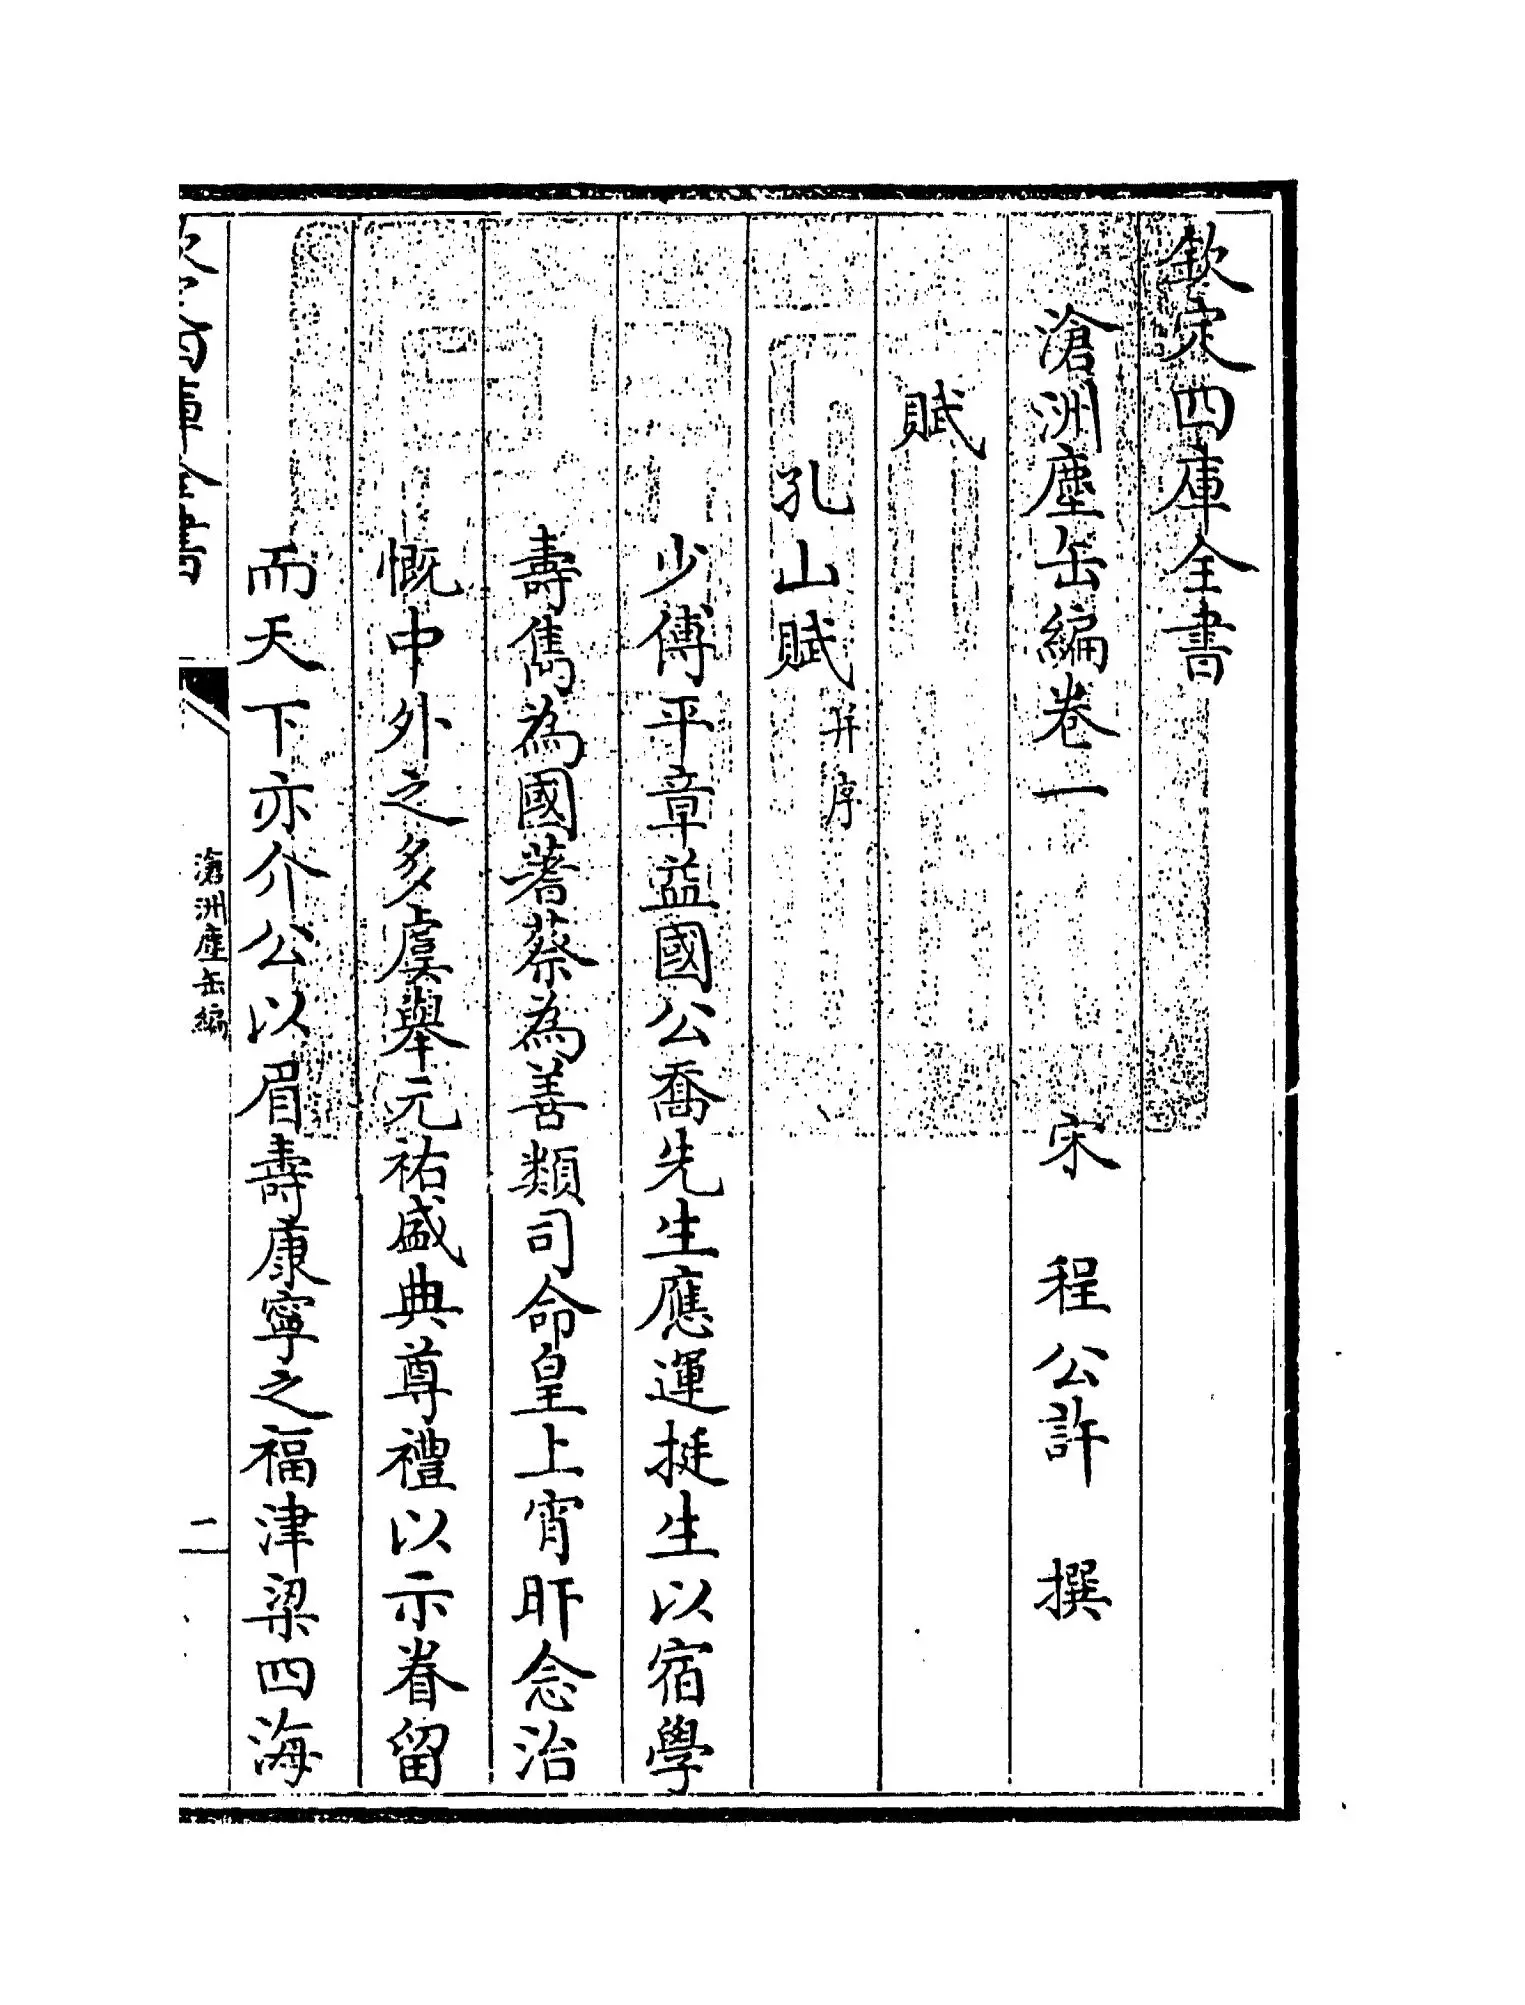 欽定四庫全書
滄洲塵缶編卷一 宋 程公許 撰
賦
孔山賦并序
少傅平章益國公喬先生應運挺生以宿學
壽雋為國蓍蔡為善類司命皇上宵旰念治
慨中外之多虞舉元祐盛典尊禮以示眷留
而天下亦介公以眉壽康寧之福津梁四海
滄洲塵缶編
二